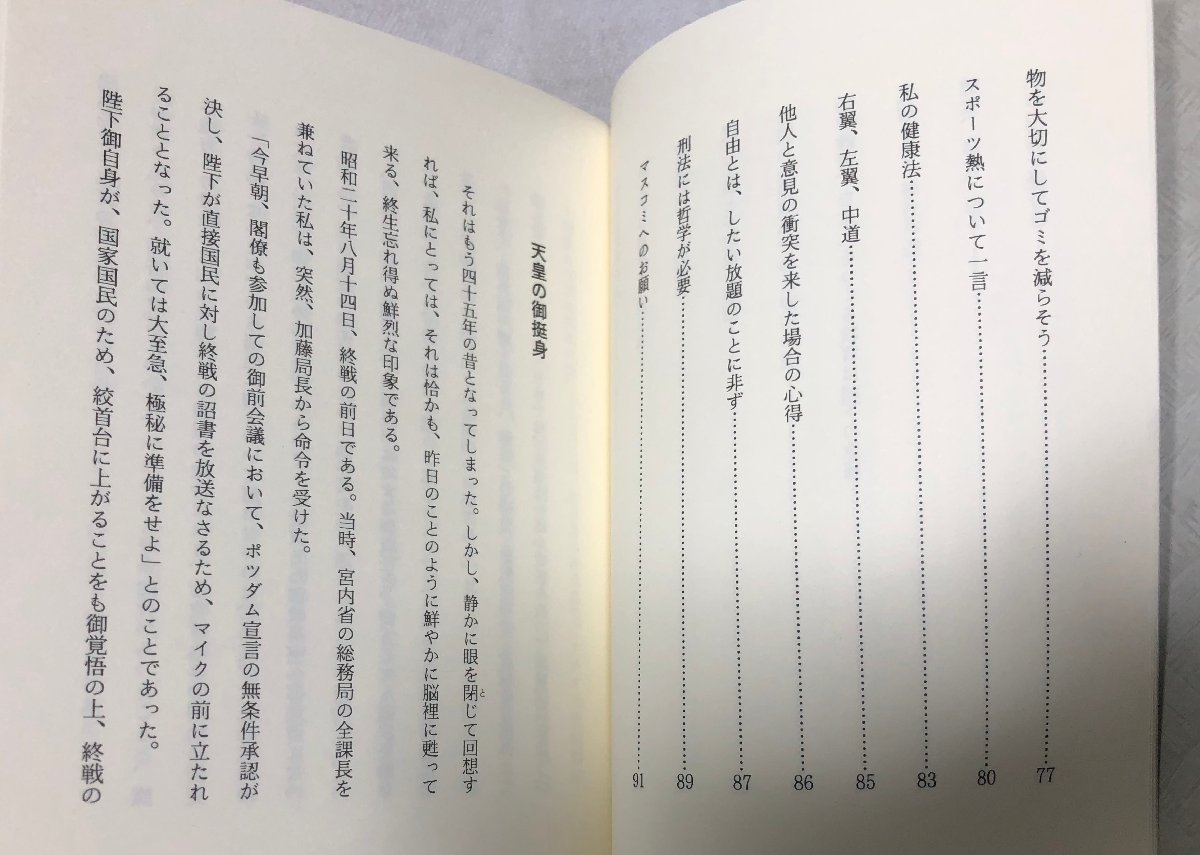 物を大切にしてゴミを減らそう……………………77
スポーツ熱について一言……………………80
私の健康法……………………83
右翼、左翼、中道……………………85
他人と意見の衝突を来した場合の心得……………………86
自由とは、したい放題のことに非ず……………………87
刑法には哲学が必要……………………89
マスコミへのお願い……………………91
天皇の御挺身
それはもう四十五年の昔となってしまった。しかし、静かに眼を閉じて回想す
と
れば、私にとっては、それは恰かも、昨日のことのように鮮やかに脳裡に甦って
来る、終生忘れ得ぬ鮮烈な印象である。
昭和二十年八月十四日、終戦の前日である。当時、宮内省の総務局の全課長を
兼ねていた私は、突然、加藤局長から命令を受けた。
「今早朝、閣僚も参加しての御前会議において、ポツダム宣言の無条件承認が
決し、陛下が直接国民に対し終戦の詔書を放送なさるため、マイクの前に立たれ
ることとなった。就いては大至急、極秘に準備をせよ」とのことであった。
陛下御自身が、国家国民のため、絞首台に上がることをも御覚悟の上、終戦の